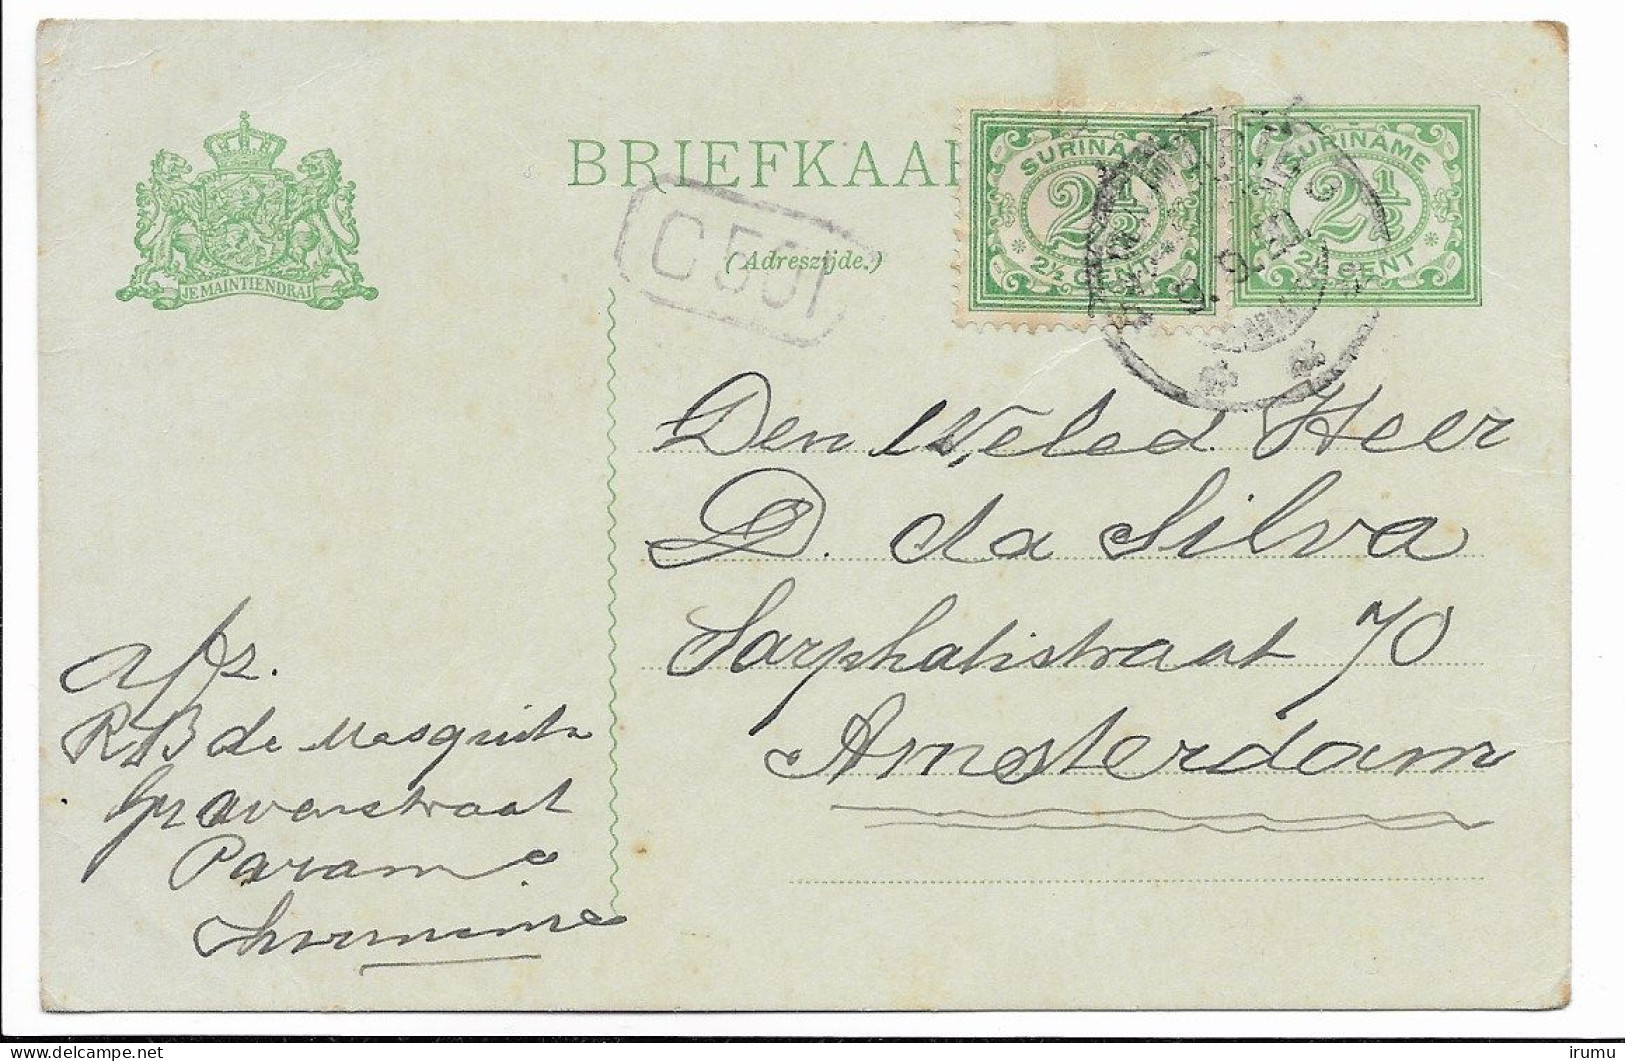 BRIEFKAA
(Adreszijde.)
JE MAINTIENDRAI
SURINAME
2½
2½ CENT
SURINAME
2½
2½ CENT
C 501
Den Weled Heer
D. da Silva
Sarphatistraat 70
Amsterdam
afz.
RB de Mesquita
Gravenstraat
Param o
Suriname
delcampe.net
irumu